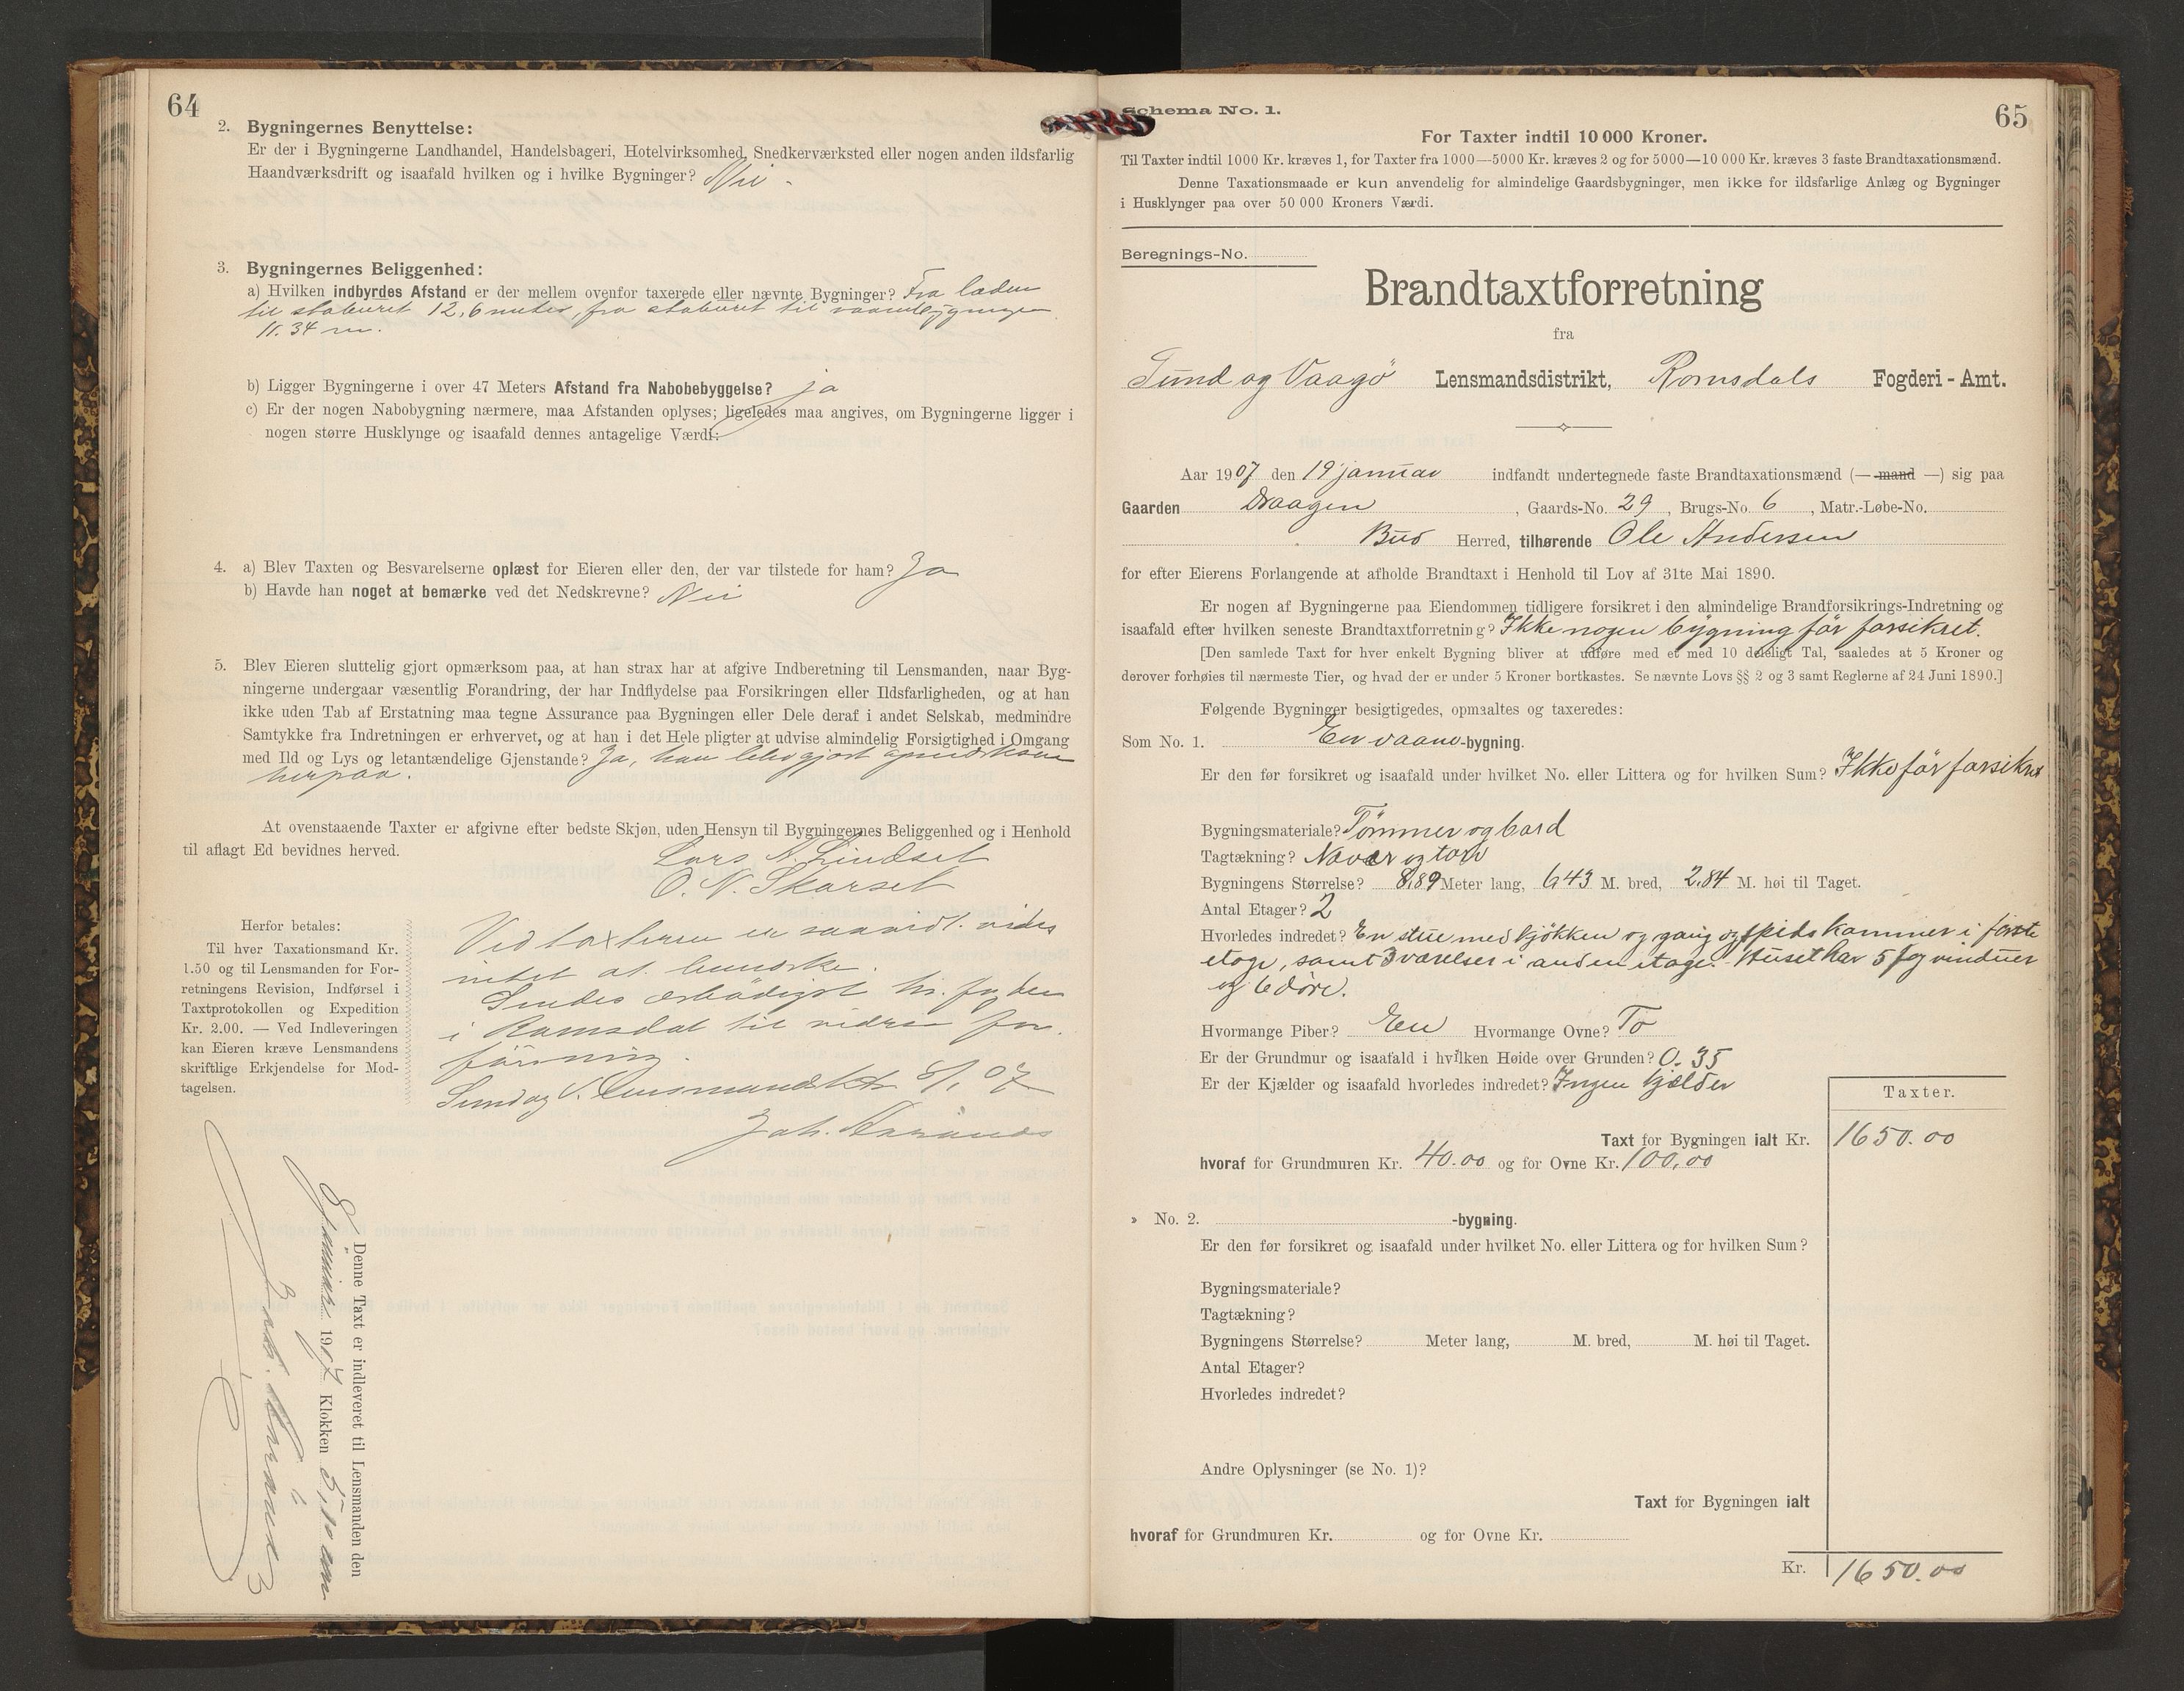 64
2. Bygningernes Benyttelse:
Er der i Bygningerne Landhandel, Handelsbageri, Hotelvirksomhed, Snedkerværksted eller nogen anden ildsfarlig
Haandværksdrift og isaafald hvilken og i hvilke Bygninger? Nei -
3. Bygningernes Beliggenhed:
a) Hvilken indbyrdes Afstand er der mellem ovenfor taxerede eller nævnte Bygninger? Fra laden
til staburet 12,6 meter, fra staburet til vaanebygningen
11.34 m.
b) Ligger Bygningerne i over 47 Meters Afstand fra Nabobebyggelse? ja
c) Er der nogen Nabobygning nærmere, maa Afstanden oplyses; ligeledes maa angives, om Bygningerne ligger i
nogen større Husklynge og isaafald dennes antagelige Værdi:
4. a) Blev Taxten og Besvarelserne oplæst for Eieren eller den, der var tilstede for ham? Ja
b) Havde han noget at bemærke ved det Nedskrevne? Nei
5. Blev Eieren sluttelig gjort opmærksom paa, at han strax har at afgive Indberetning til Lensmanden, naar Byg-
ningerne undergaar væsentlig Forandring, der har Indflydelse paa Forsikringen eller Ildsfarligheden, og at han
ikke uden Tab af Erstatning maa tegne Assurance paa Bygningen eller Dele deraf i andet Selskab, medmindre
Samtykke fra Indretningen er erhvervet, og at han i det Hele pligter at udvise almindelig Forsigtighed i Omgang
med Ild og Lys og letantændelige Gjenstande? Ja, han blev gjort opmærksom
herpaa.
At ovenstaaende Taxter er afgivne efter bedste Skjøn, uden Hensyn til Bygningernes Beliggenhed og i Henhold
til aflagt Ed bevidnes herved.
Lars N. Lindset
O. N. Skarset
Herfor betales:
Til hver Taxationsmand Kr.
1.50 og til Lensmanden for For-
retningens Revision, Indførsel i
Taxtprotokollen og Expedition
Kr. 2.00. — Ved Indleveringen
kan Eieren kræve Lensmandens
skriftlige Erkjendelse for Mod-
tagelsen.
Ved taxterne er saavidt vides
intet at bemærke.
Sendes ærbødigst hr. fogden
i Romsdal til videre for-
føining.
Lensmandsktr. 8/1 07
Joh.
Denne Taxt er indleveret til Lensmanden den
8 januar 1907 Klokken 5,10 em
Joh.
Schema No. 1.
65
For Taxter indtil 10 000 Kroner.
Til Taxter indtil 1000 Kr. kræves 1, for Taxter fra 1000—5000 Kr. kræves 2 og for 5000—10 000 Kr. kræves 3 faste Brandtaxationsmænd.
Denne Taxationsmaade er kun anvendelig for almindelige Gaardsbygninger, men ikke for ildsfarlige Anlæg og Bygninger
i Husklynger paa over 50 000 Kroners Værdi.
Beregnings-No.
Brandtaxtforretning
fra
Sund og Vaagö Lensmandsdistrikt, Romsdals Fogderi - Amt.
Aar 1907 den 19 januar indfandt undertegnede faste Brandtaxationsmænd (— mand —) sig paa
Gaarden Draagen, Gaards-No. 29, Brugs-No. 6, Matr.-Løbe-No.
Bud Herred, tilhørende Ole Andersen
for efter Eierens Forlangende at afholde Brandtaxt i Henhold til Lov af 31te Mai 1890.
Er nogen af Bygningerne paa Eiendommen tidligere forsikret i den almindelige Brandforsikrings-Indretning og
isaafald efter hvilken seneste Brandtaxtforretning? Ikke nogen bygning før forsikret.
[Den samlede Taxt for hver enkelt Bygning bliver at udføre med et med 10 deleligt Tal, saaledes at 5 Kroner og
derover forhøies til nærmeste Tier, og hvad der er under 5 Kroner bortkastes. Se nævnte Lovs §§ 2 og 3 samt Reglerne af 24 Juni 1890.]
Følgende Bygninger besigtigedes, opmaaltes og taxeredes:
Som No. 1. En vaane-bygning.
Er den før forsikret og isaafald under hvilket No. eller Littera og for hvilken Sum? Ikke før forsikret
Bygningsmateriale? Tømmer og bord
Tagtækning? Næver og torv
Bygningens Størrelse? 8,89 Meter lang, 643 M. bred, 2.84 M. høi til Taget.
Antal Etager? 2
Hvorledes indredet? En stue med kjökken og gang og spiskammer i første
etage, samt 3 værelser i anden etage. Huset har 5 fag vinduer
og 6 döre.
Hvormange Piber? En Hvormange Ovne? To
Er der Grundmur og isaafald i hvilken Høide over Grunden? 0.35
Er der Kjælder og isaafald hvorledes indredet? Ingen kjælder
Taxter.
Taxt for Bygningen ialt Kr. 1650.00
hvoraf for Grundmuren Kr. 40.00 og for Ovne Kr. 100,00
» No. 2. -bygning.
Er den før forsikret og isaafald under hvilket No. eller Littera og for hvilken Sum?
Bygningsmateriale?
Tagtækning?
Bygningens Størrelse? Meter lang, M. bred, M. høi til Taget.
Antal Etager?
Hvorledes indredet?
Andre Oplysninger (se No. 1)?
Taxt for Bygningen ialt
hvoraf for Grundmuren Kr. og for Ovne Kr.
Kr. 1650.00